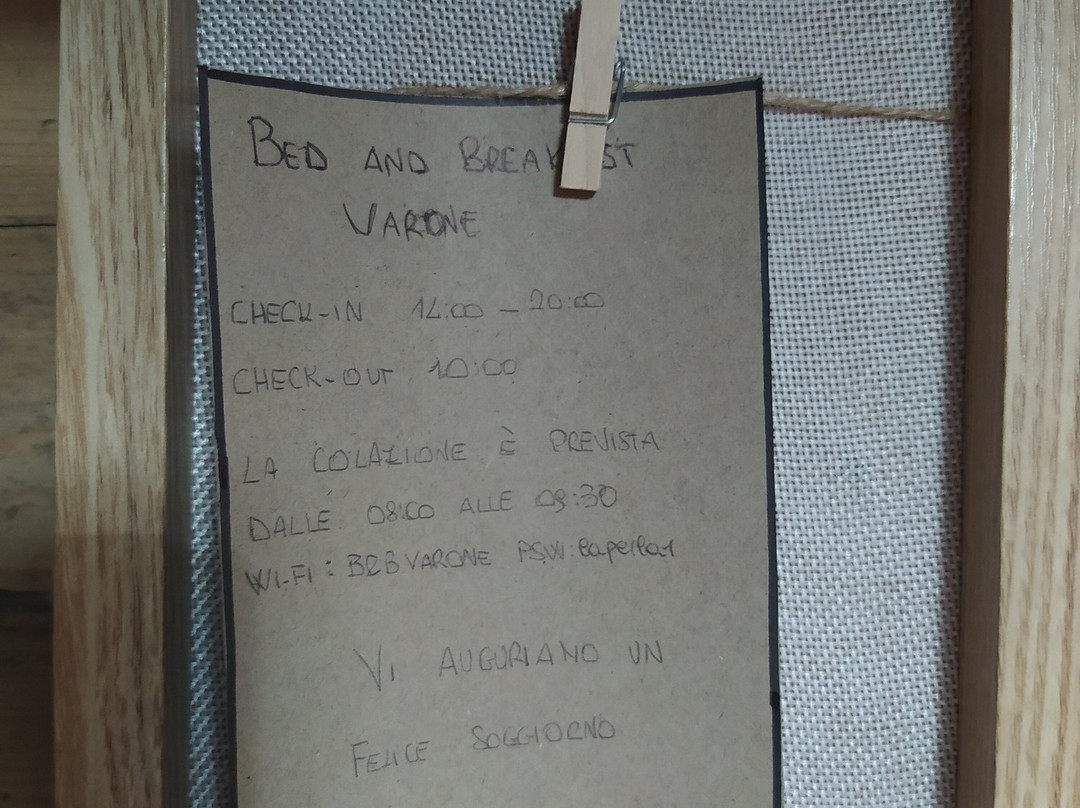 BED AND BREAKST
VARONE
CHECK-IN 14:00 - 20:00
CHECK-OUT 10:00
LA COLAZIONE È PREVISTA
DALLE 08:00 ALLE 09:30
WI-FI: B&BVARONE PSW:
VI AUGURIAMO UN
FELICE SOGGIORNO